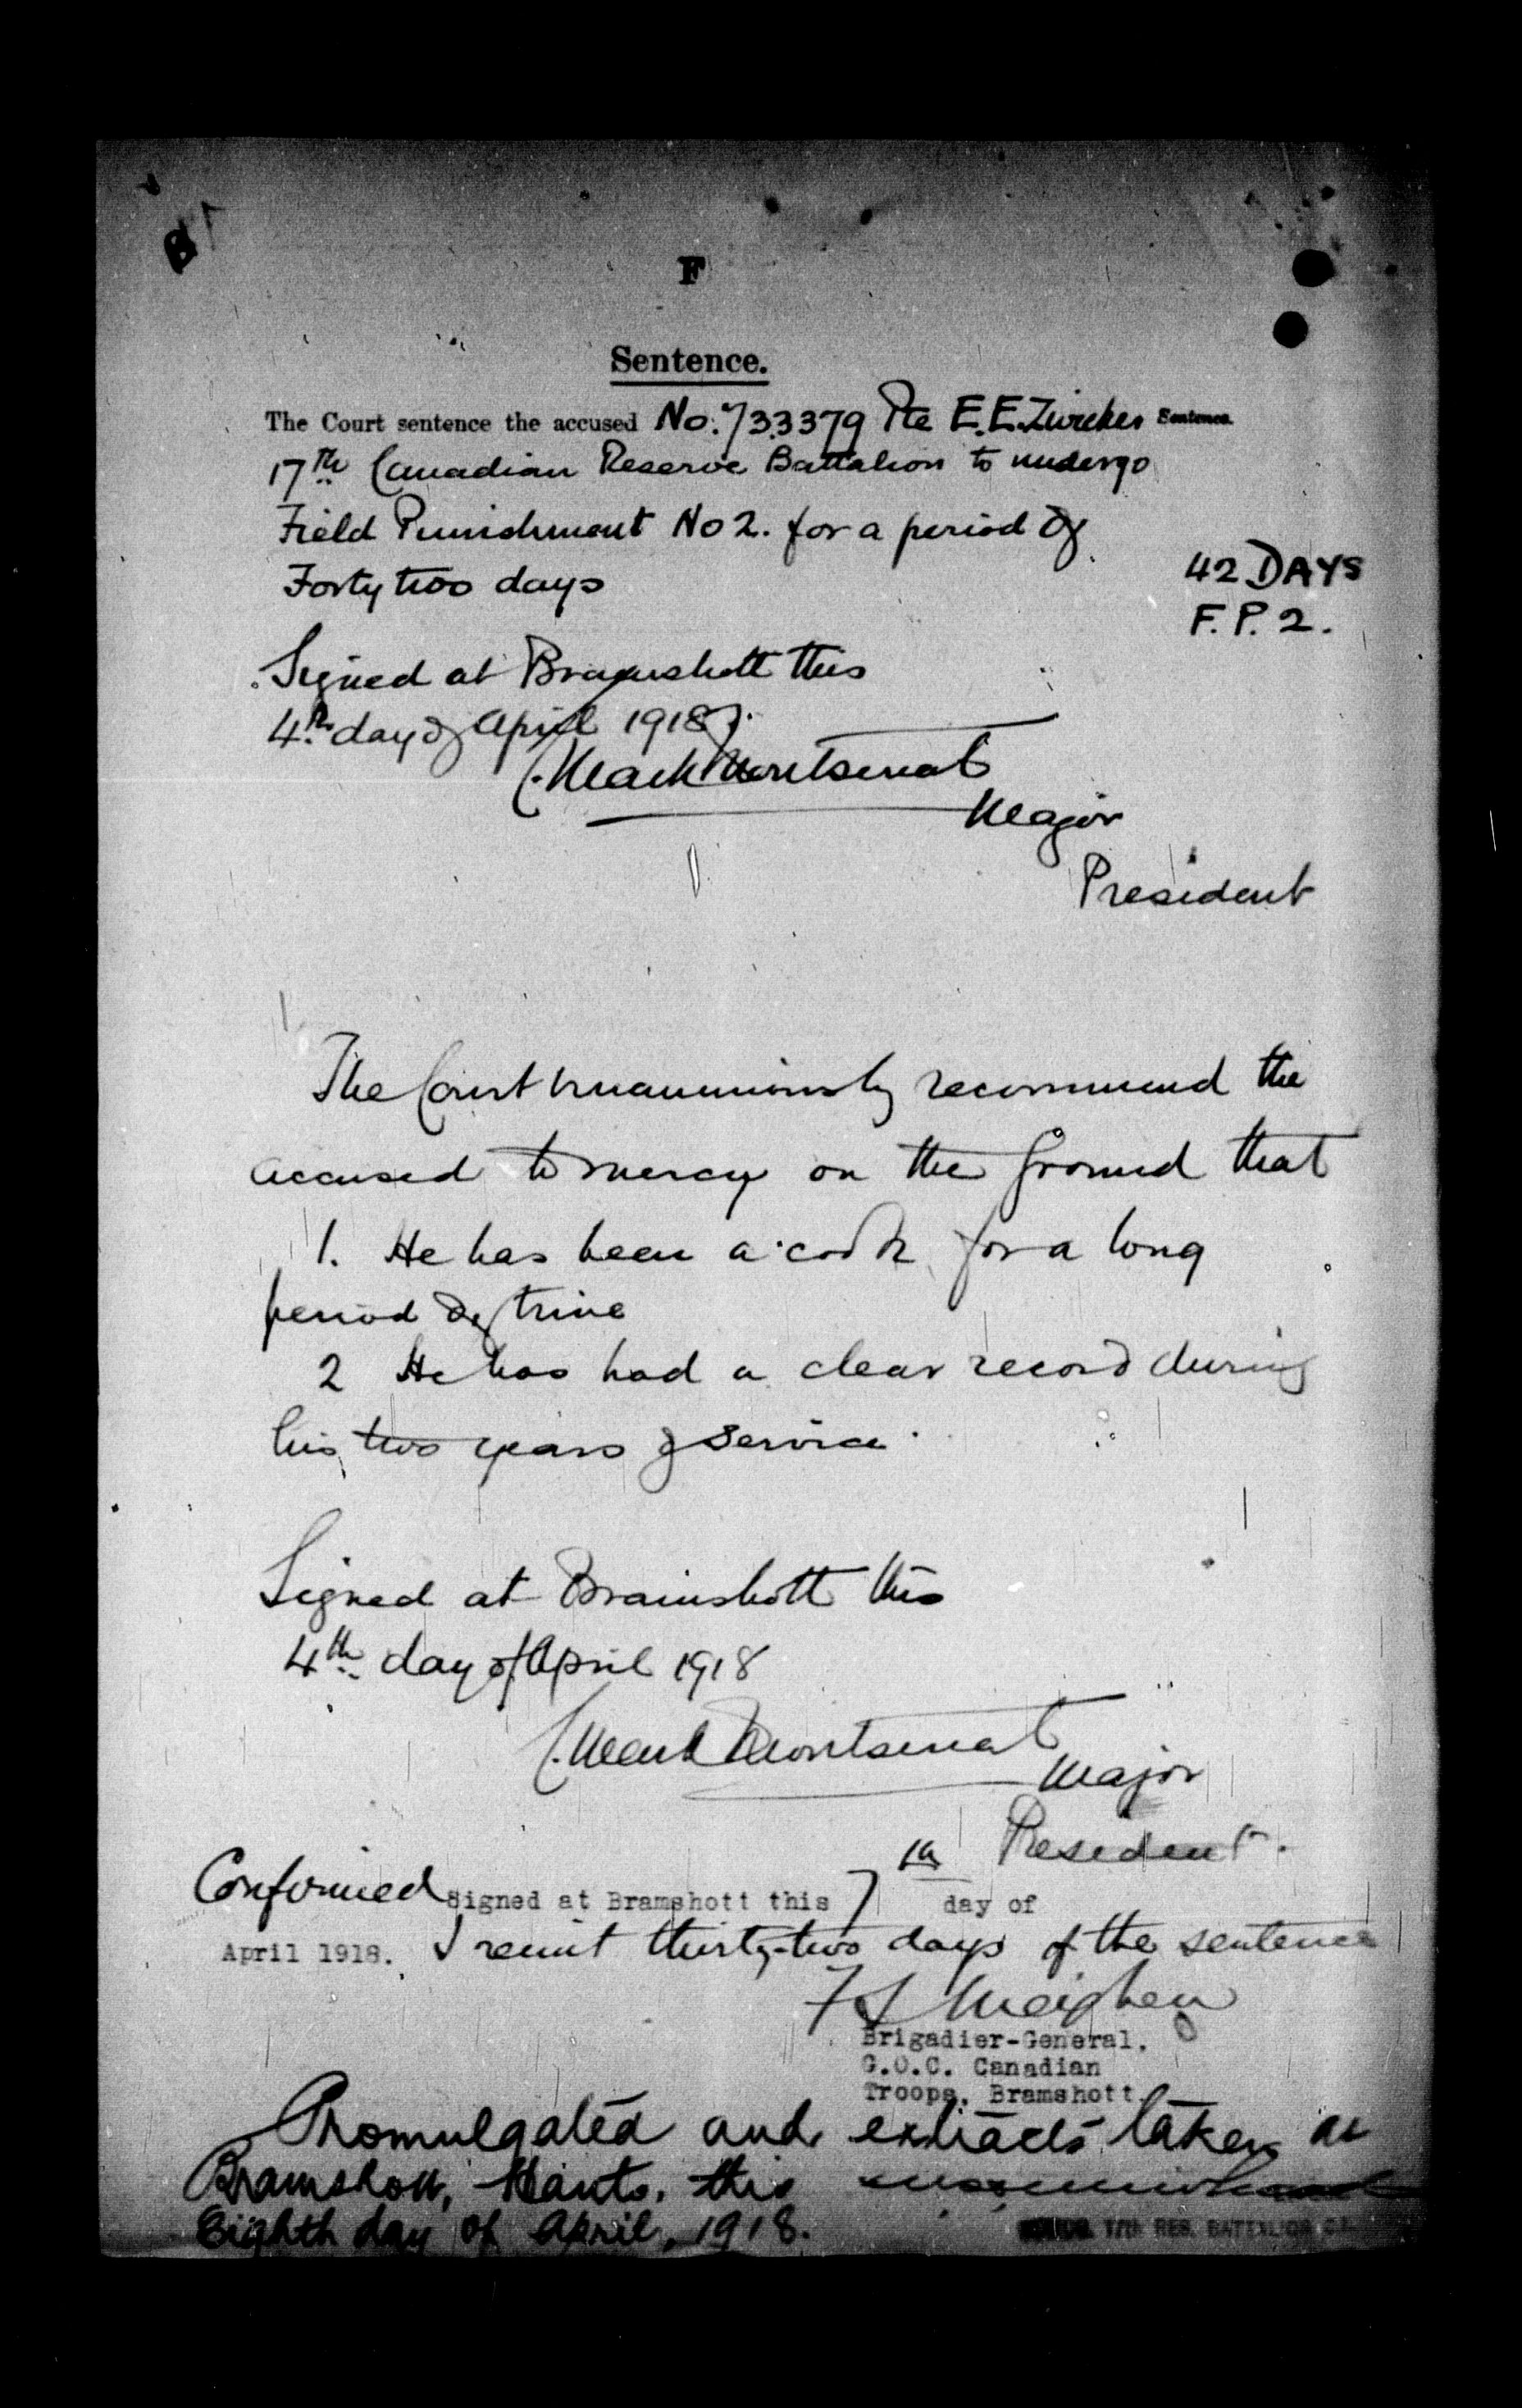 F
Sentence.
The Court sentence the accused No. 733379 Pte E.E. Zwicker Sentence.
17th Canadian Reserve Battalion to undergo
Field Punishment No 2. for a period of
Forty two days
42 DAYS
F. P. 2.
Signed at Bramshott this
4th day of April 1918
Major
President
The Court unanimously recommend the
accused to mercy on the ground that
1. He has been a cook for a long
period of time
2 He has had a clear record during
his two years of service.
Signed at Bramshott this
4th day of April 1918
Major
President.
Confirmed Signed at Bramshott this 7th day of
April 1918. I remit thirty-two days of the sentence
F S Meighen
Brigadier-General,
G.O.C. Canadian
Troops, Bramshott.
Promulgated and extracts taken at
Bramshott, Hants. this
Eighth day of April, 1918.
17th RES. BATTALION